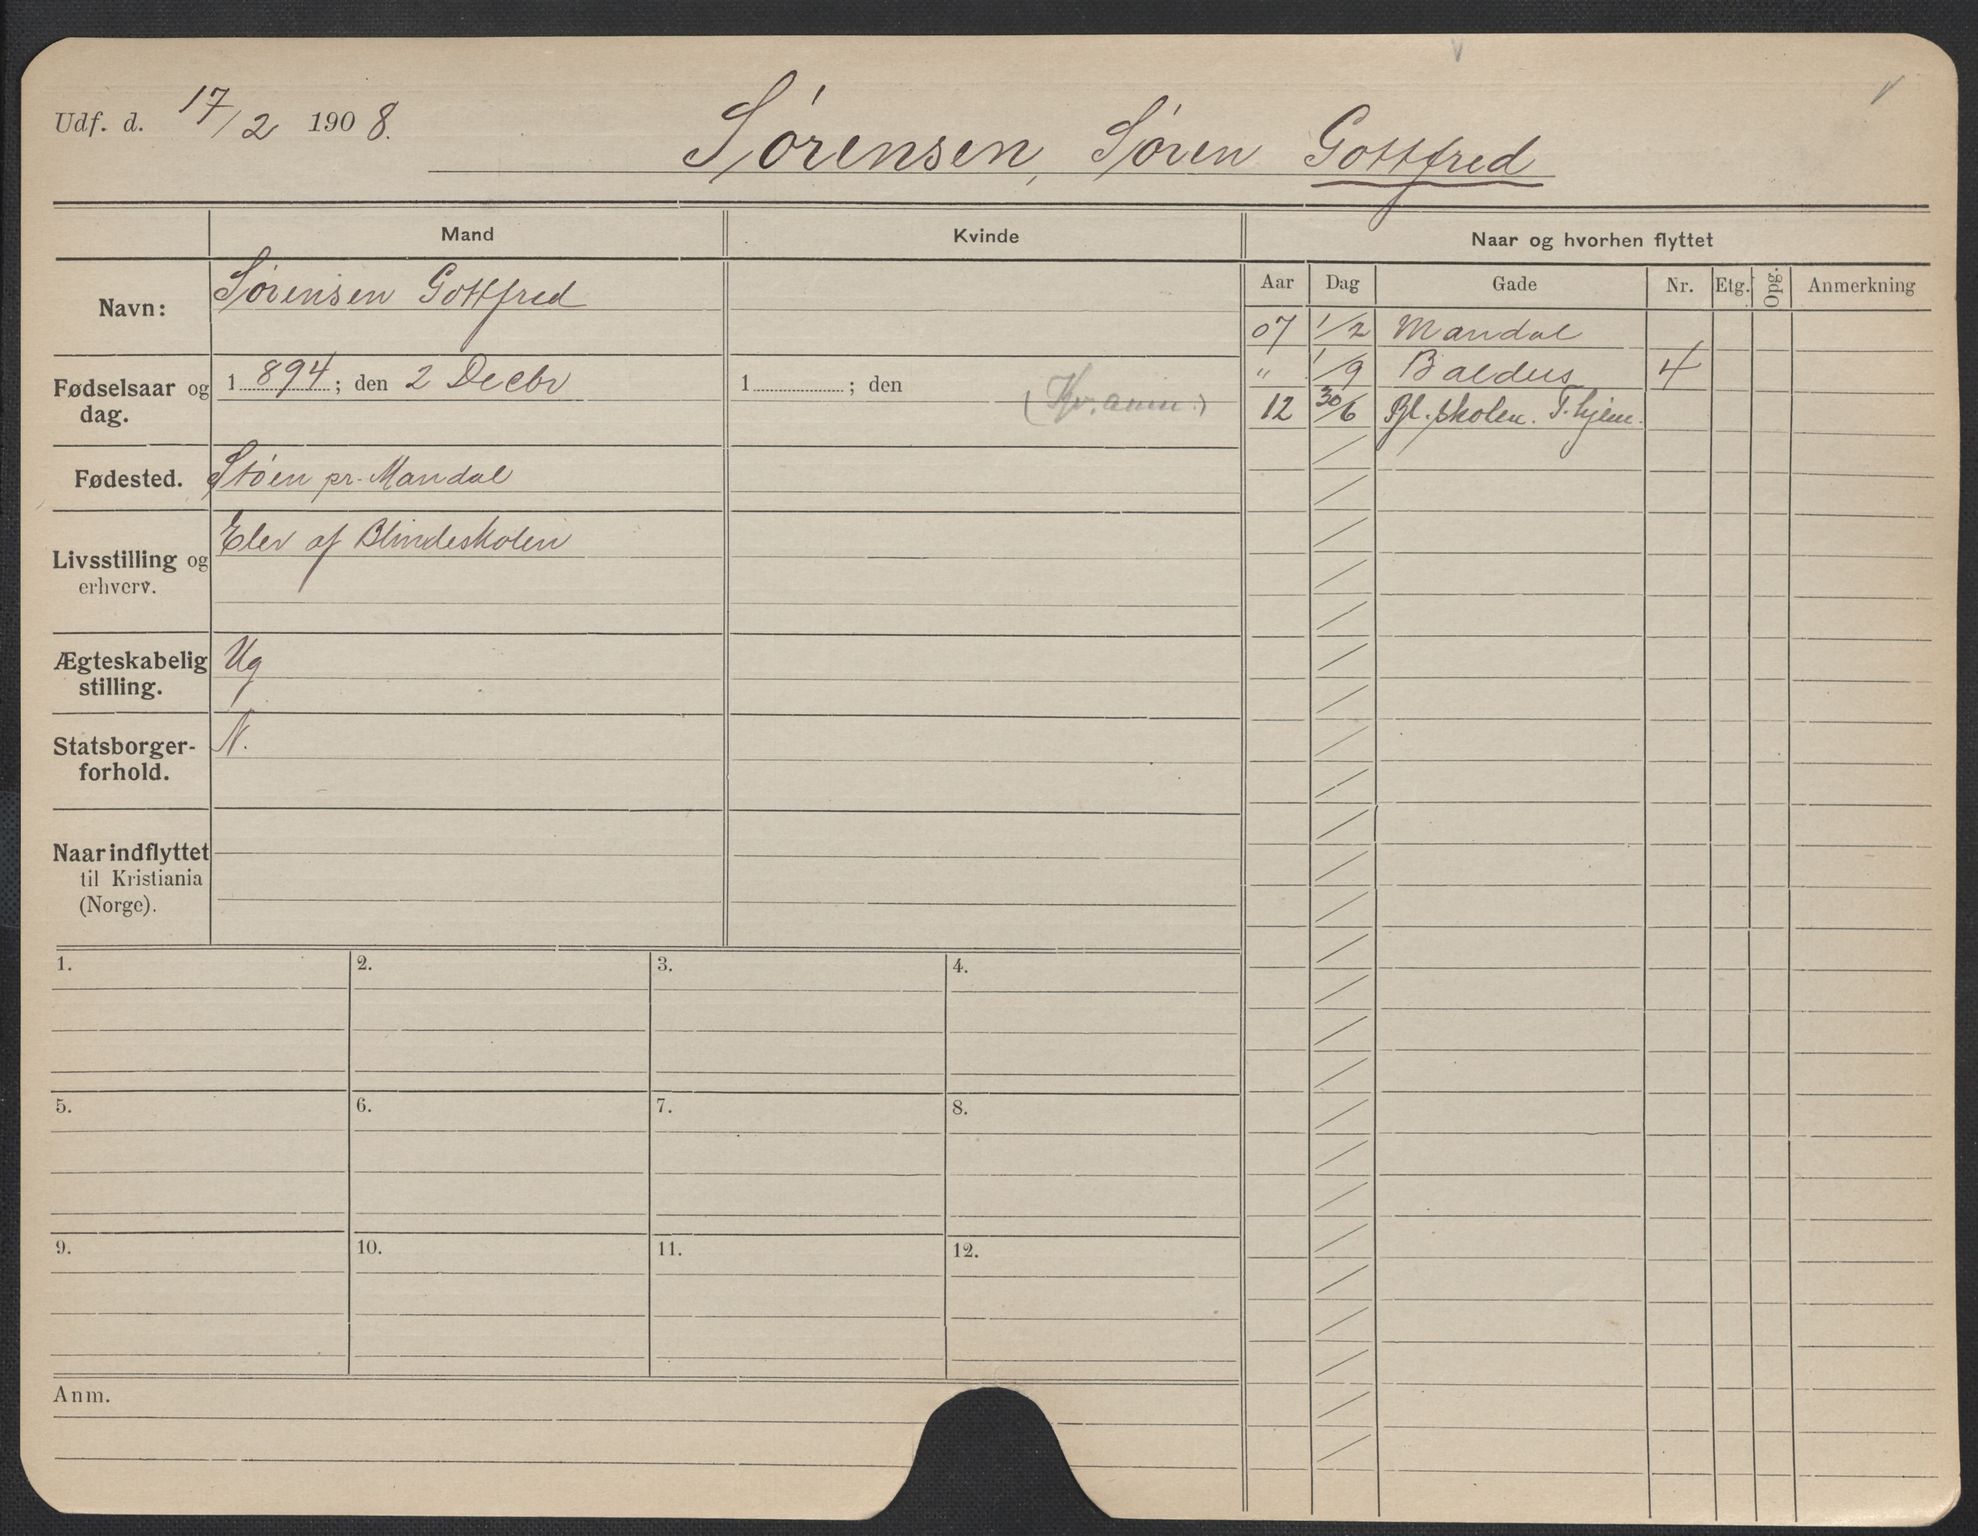 Udf. d. 17/2 1908.
Sørensen, Søren Gottfred
Mand
Kvinde
Naar og hvorhen flyttet
Navn:
Sørensen Gottfred
Fødselsaar og dag.
1894; den 2 Decbr
1 ; den
Fødested.
Støen pr. Mandal
Livsstilling og erhverv.
Elev af Blindeskolen
Ægteskabelig stilling.
Ug
Statsborger-forhold.
N.
Naar indflyttet til Kristiania (Norge).
Aar Dag Gade Nr. Etg. Opg. Anmerkning
07 1/2 Mandal
" 1/9 Baldus 4
12 30/6 Bl. skolen. T.hjem.
1. 2. 3. 4.
5. 6. 7. 8.
9. 10. 11. 12.
Anm.